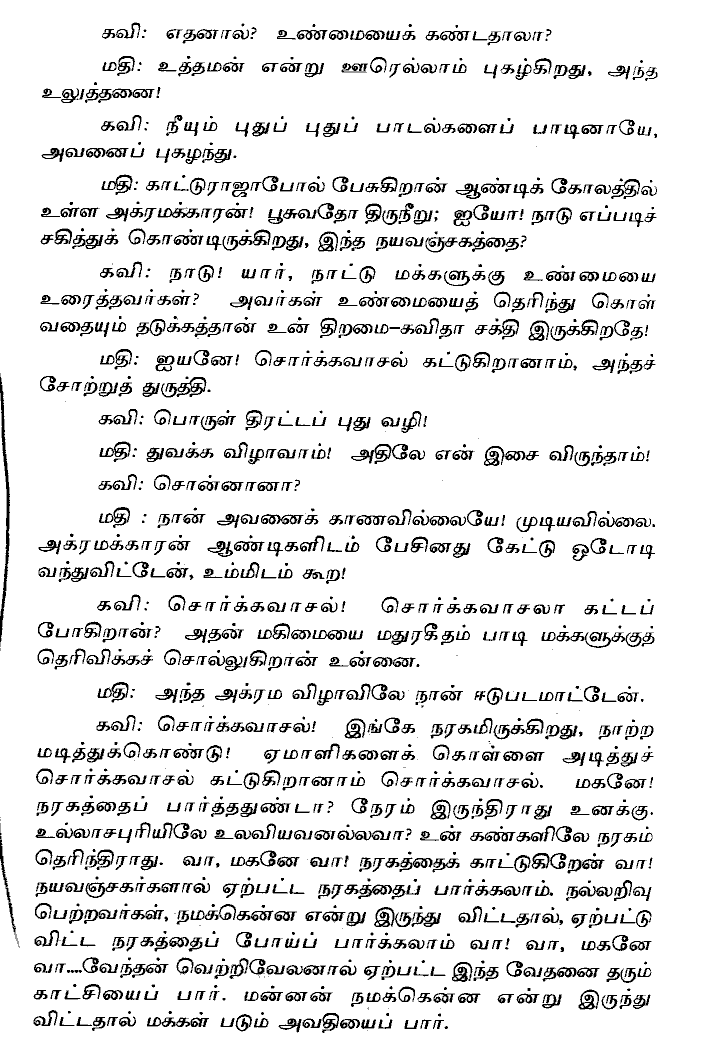 கவி: எதனால்? உண்மையைக் கண்டதாலா?
மதி: உத்தமன் என்று ஊரெல்லாம் புகழ்கிறது, அந்த
உலுத்தனை!
கவி: நீயும் புதுப் புதுப் பாடல்களைப் பாடினாயே,
அவனைப் புகழந்து.
மதி: காட்டுராஜாபோல் பேசுகிறான் ஆண்டிக் கோலத்தில்
உள்ள அக்ரமக்காரன்! பூசுவதோ திருநீறு; ஐயோ! நாடு எப்படிச்
சகித்துக் கொண்டிருக்கிறது, இந்த நயவஞ்சகத்தை?
கவி: நாடு! யார், நாட்டு மக்களுக்கு உண்மையை
உரைத்தவர்கள்? அவர்கள் உண்மையைத் தெரிந்து கொள்
வதையும் தடுக்கத்தான் உன் திறமை—கவிதா சக்தி இருக்கிறதே!
மதி: ஐயனே! சொர்க்கவாசல் கட்டுகிறானாம், அந்தச்
சோற்றுத் துருத்தி.
கவி: பொருள் திரட்டப் புது வழி!
மதி: துவக்க விழாவாம்! அதிலே என் இசை விருந்தாம்!
கவி: சொன்னானா?
மதி : நான் அவனைக் காணவில்லையே! முடியவில்லை.
அக்ரமக்காரன் ஆண்டிகளிடம் பேசினது கேட்டு ஒடோடி
வந்துவிட்டேன், உம்மிடம் கூற!
கவி: சொர்க்கவாசல்! சொர்க்கவாசலா கட்டப்
போகிறான்? அதன் மகிமையை மதுரகீதம் பாடி மக்களுக்குத்
தெரிவிக்கச் சொல்லுகிறான் உன்னை.
மதி: அந்த அக்ரம விழாவிலே நான் ஈடுபடமாட்டேன்.
கவி: சொர்க்கவாசல்! இங்கே நரகமிருக்கிறது, நாற்ற
மடித்துக்கொண்டு! ஏமாளிகளைக் கொள்ளை அடித்துச்
சொர்க்கவாசல் கட்டுகிறானாம் சொர்க்கவாசல். மகனே!
நரகத்தைப் பார்த்ததுண்டா? நேரம் இருந்திராது உனக்கு.
உல்லாசபுரியிலே உலவியவனல்லவா? உன் கண்களிலே நரகம்
தெரிந்திராது. வா, மகனே வா! நரகத்தைக் காட்டுகிறேன் வா!
நயவஞ்சகர்களால் ஏற்பட்ட நரகத்தைப் பார்க்கலாம். நல்லறிவு
பெற்றவர்கள், நமக்கென்ன என்று இருந்து விட்டதால், ஏற்பட்டு
விட்ட நரகத்தைப் போய்ப் பார்க்கலாம் வா! வா, மகனே
வா....வேந்தன் வெற்றிவேலனால் ஏற்பட்ட இந்த வேதனை தரும்
காட்சியைப் பார். மன்னன் நமக்கென்ன என்று இருந்து
விட்டதால் மக்கள் படும் அவதியைப் பார்.